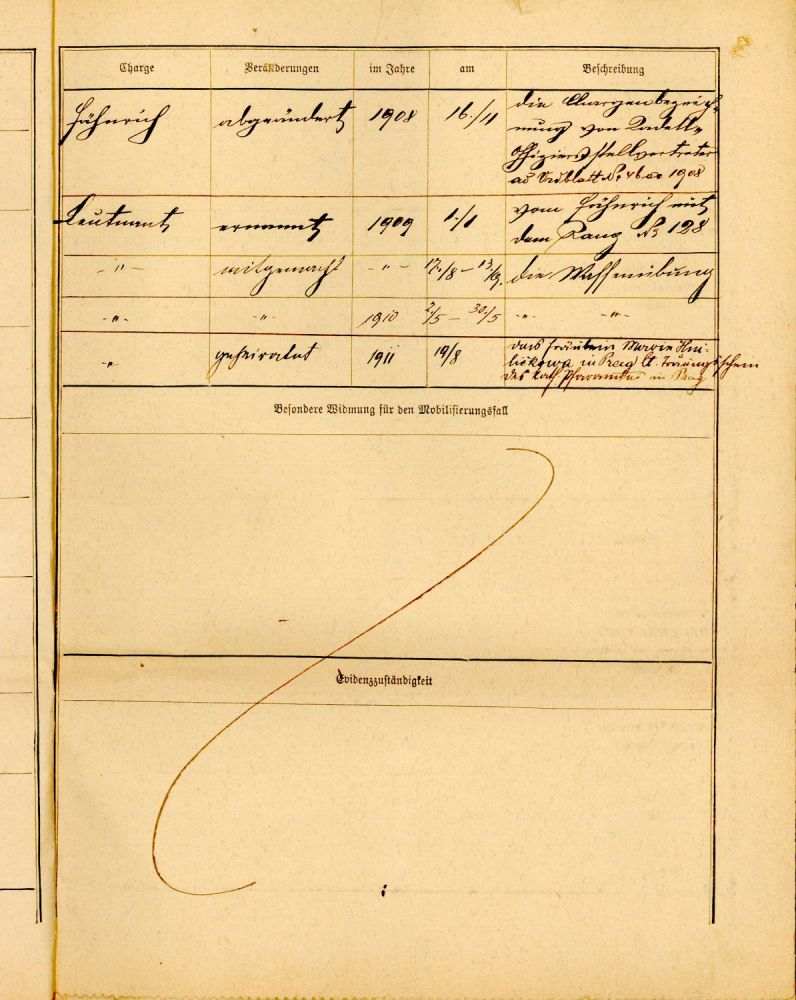 Charge Veränderungen im Jahre am Beschreibung
Fähnrich abgeändert 1908 16./11 die Chargenbezeich-
nung von Kadett-
Offiziersstellvertreter
ad Vdblatt Nr 46 ex 1908
Leutnant ernannt 1909 1./1 vom Fähnrich mit
dem Rang Nr 128
-"- mitgemacht -"- 17./8 - 13./9. die Waffenübung
-"- -"- 1910 2/5 - 30./5 -"- -"-
-"- geheiratet 1911 19/8 das Fräulein Marie
in Prag lt. Trauungsschein
des Pfarramtes in Prag
Besondere Widmung für den Mobilisierungsfall
Evidenzzuständigkeit